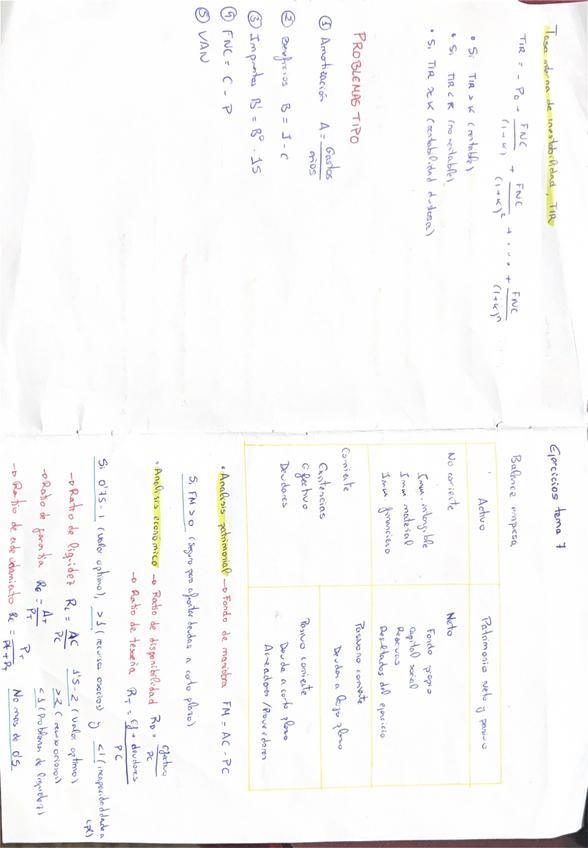 Tasa interna de rentabilidad, TIR
TIR = - P0 + FNC/(1+K) + FNC/(1+K)² + .... + FNC/(1+K)ⁿ
• Si TIR > K (rentable)
• Si TIR < K (no rentable)
• Si TIR ≈ K (rentabilidad dudosa)
PROBLEMAS TIPO
① Amortización A = Gastos/años
② Beneficios B = I - C
③ Impuestos B' = B⁰ · IS
④ FNC = C - P
⑤ VAN
Ejercicios tema 7
Balance empresa
Activo
No corriente
Inm. intangible
Inm material
Inm financiero
Corriente
Existencias
Efectivo
Deudores
Patrimonio neto y pasivo
Neto
Fondo propio
Capital social
Reservas
Resultados del ejercicio
Pasivo no corriente
Deudas a largo plazo
Pasivo corriente
Deuda a corto plazo
Acreedores/Proveedores
• Análisis patrimonial → Fondo de maniobra FM = AC - PC
Si FM > 0 (seguro para afrontar deudas a corto plazo)
• Análisis económico → Ratio de disponibilidad RD = Efectivo/PC
→ Ratio de tesorería RT = Ef + deudores/PC
Si 0'75-1 (valor optimo), >1 (recursos ociosos) y <1 (incapacidad deuda (PC)
→ Ratio de liquidez RL = AC/PC 1'5-2 (valor optimo)
>2 (recursos ociosos)
<1 (Problema de liquidez)
→ Ratio de garantía RG = AT/PT
→ Ratio de endeudamiento RE = PT/PN+PT No mas de 0'5